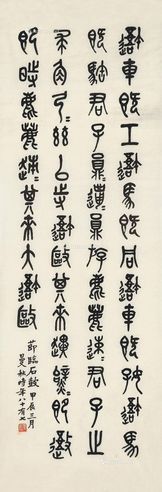 吾車既工吾馬既同吾車既好吾馬
既駘君子員邋員斿麀鹿速君子之
求角弓茲以寺吾敺其來趩即吾
即時麀鹿趚其來大吾敺
節臨石鼓 甲辰三月
曼秋時年八十有七